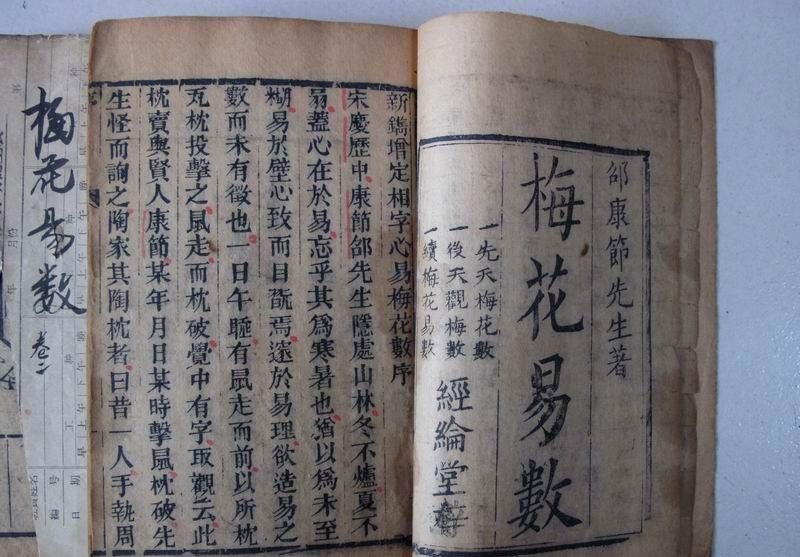 邵康節先生著
梅花易數
一先天梅花數
一後天觀梅數
一續梅花易數
經綸堂
新鐫增定相字心易梅花數序
宋慶歷中康節邵先生隱處山林冬不爐夏不
扇蓋心在於易忘乎其為寒暑也猶以為未至
糊易於壁心致而目翫焉邃於易理欲造易之
數而未有徵也一日午睡有鼠走而前以所枕
瓦枕投擊之鼠走而枕破覺中有字取觀云此
枕賣與賢人康節某年月日某時擊鼠枕破先
生怪而詢之陶家其陶枕者曰昔一人手執周
梅花易數 卷二